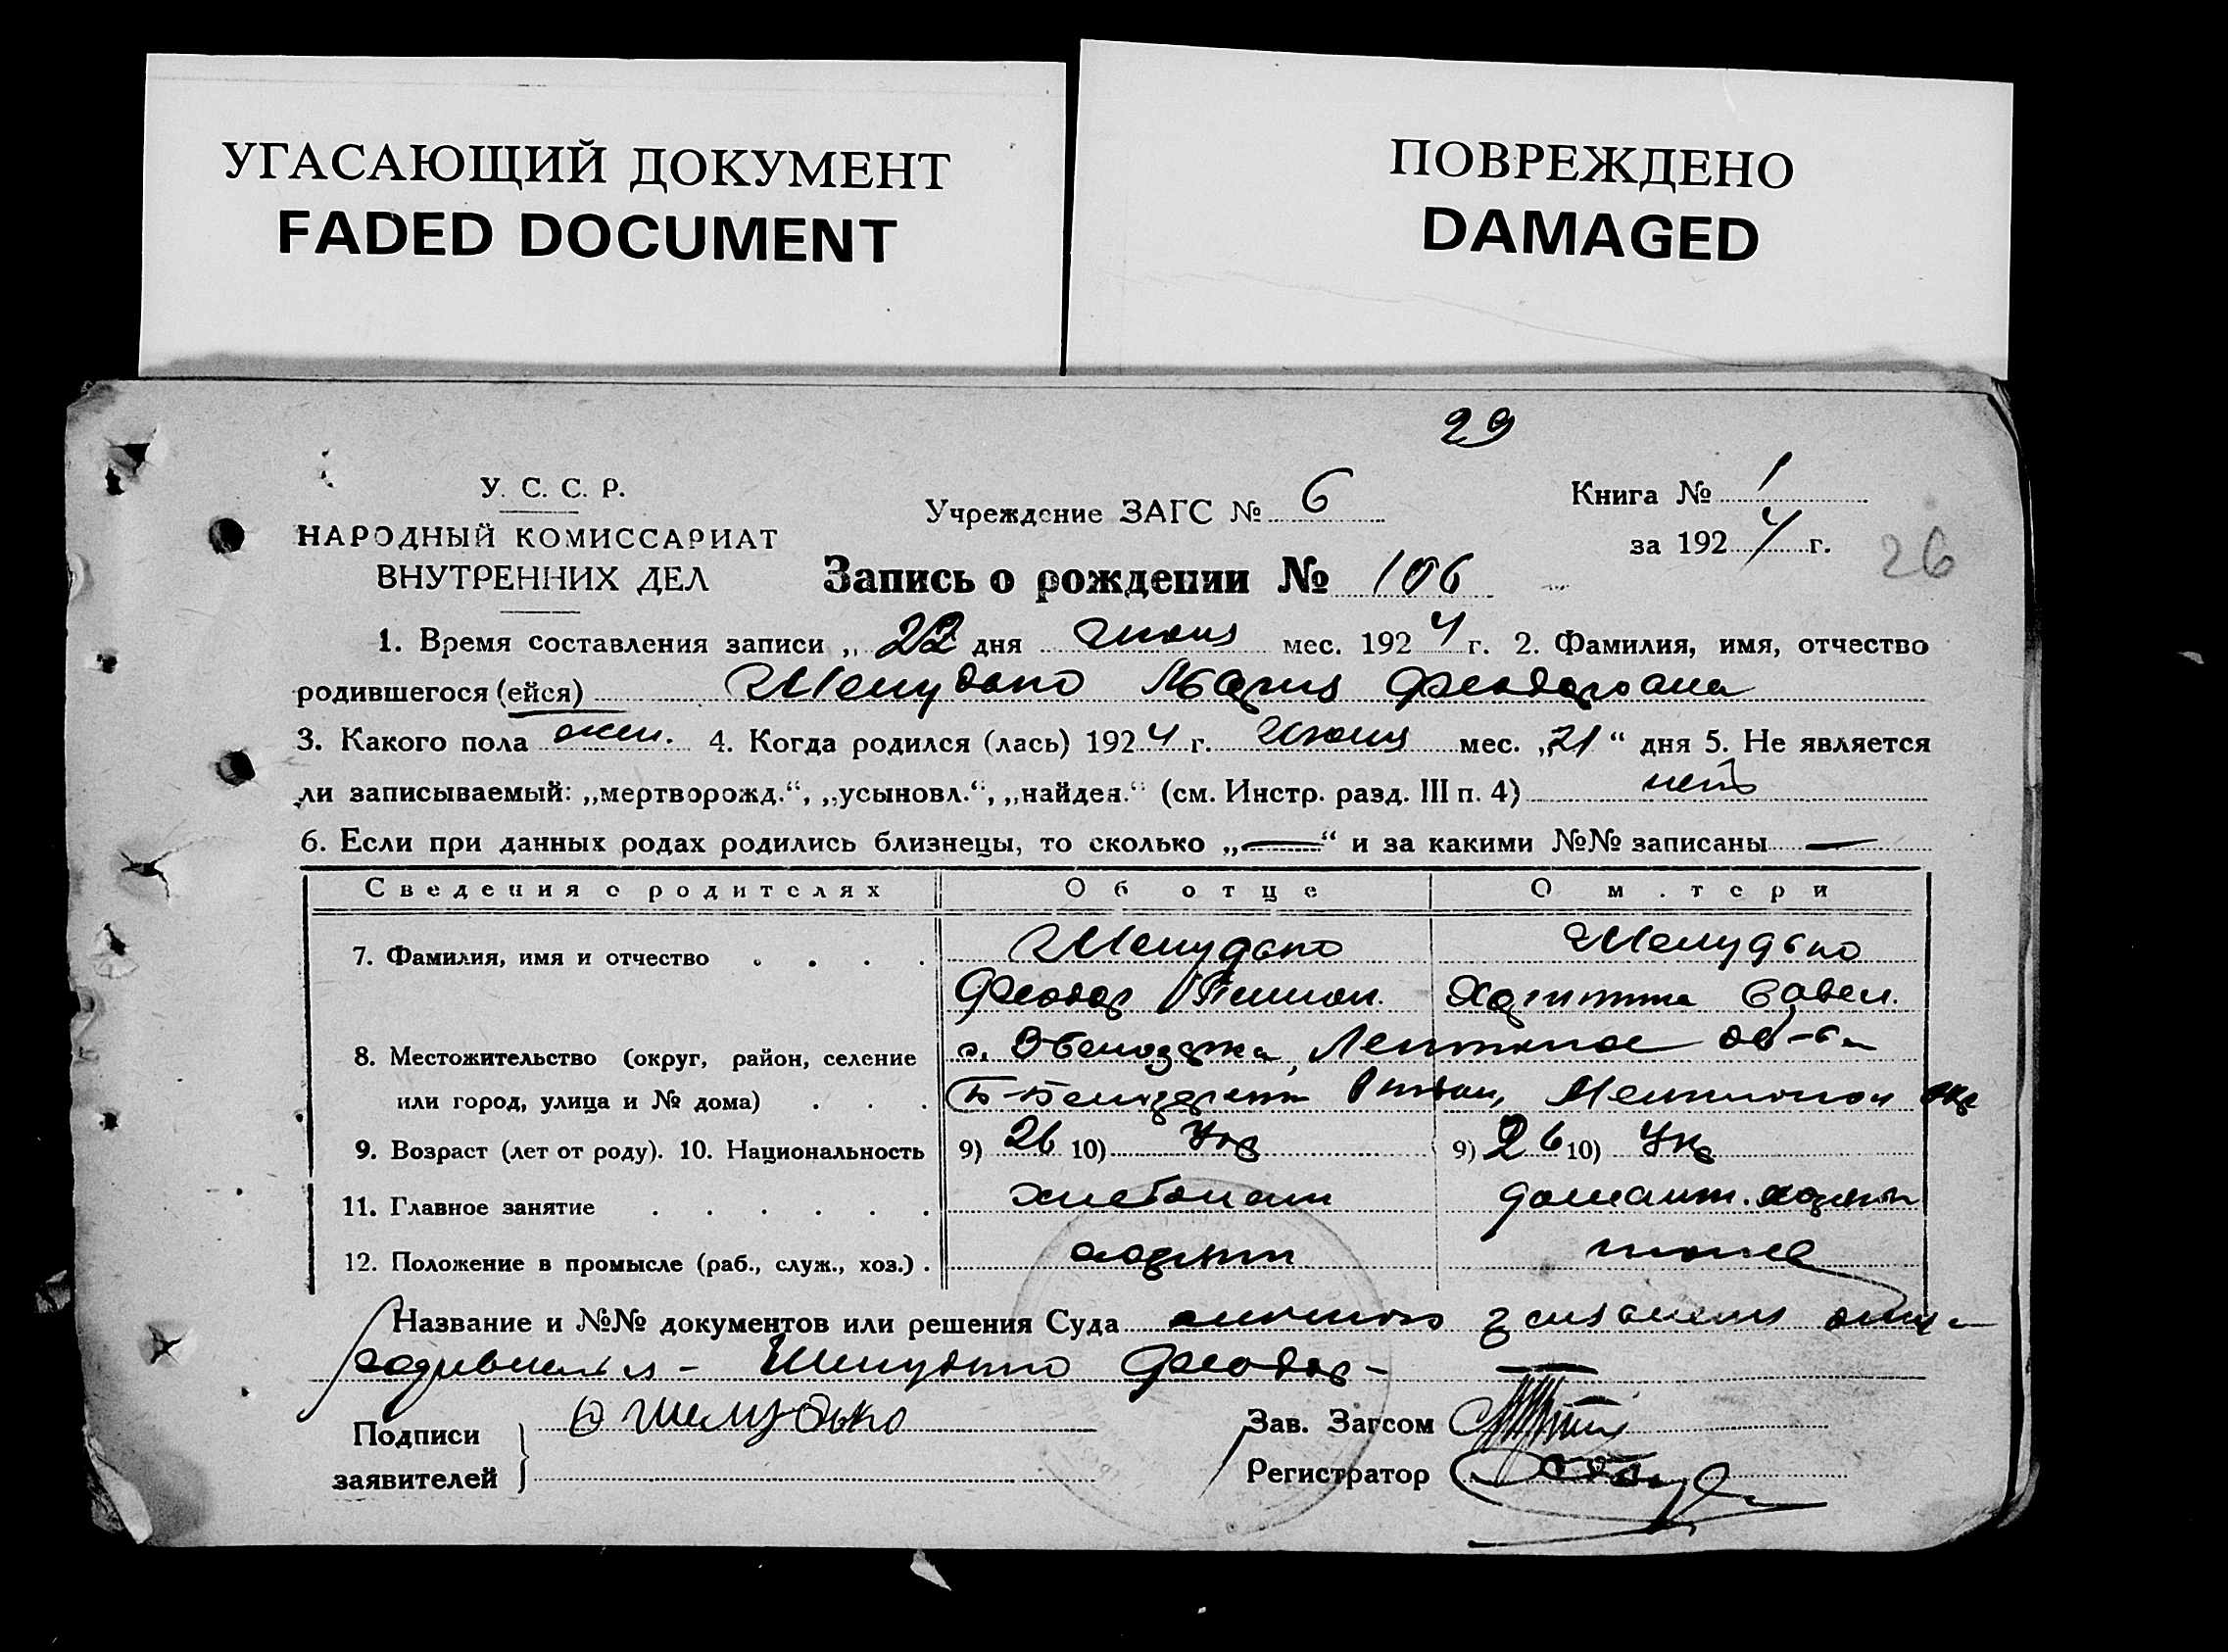 УГАСАЮЩИЙ ДОКУМЕНТ
FADED DOCUMENT
ПОВРЕЖДЕНО
DAMAGED
29
У. С. С. Р.
НАРОДНЫЙ КОМИССАРИАТ
ВНУТРЕННИХ ДЕЛ
Учреждение ЗАГС № 6
Книга № 1
за 1924 г.
26
Запись о рождении № 106
1. Время составления записи „ 22 дня июня мес. 1924 г. 2. Фамилия, имя, отчество
родившегося (ейся) Шелудько Мария Феодоровна
3. Какого пола жен. 4. Когда родился (лась) 1924 г. Июня мес. „21“ дня 5. Не является
ли записываемый: „мертворожд.“, „усыновл.“, „найден.“ (см. Инстр. разд. III п. 4) нет
6. Если при данных родах родились близнецы, то сколько „—“ и за какими №№ записаны —
Сведения о родителях Об отце О м.тери
7. Фамилия, имя и отчество . . . . Шелудько Шелудько
Феодор Харитина Савел.
8. Местожительство (округ, район, селение
или город, улица и № дома) . . .
9. Возраст (лет от роду). 10. Национальность 9) 26 10) Укр 9) 26 10) Укр
11. Главное занятие . . . . . . хлебопаш домашн. хозяйн
12. Положение в промысле (раб., служ., хоз.) . хозяин
Название и №№ документов или решения Суда личного заявления отца
Шелудько Феодор -
Подписи
заявителей
Ф Шелудько
Зав. Загсом
Регистратор